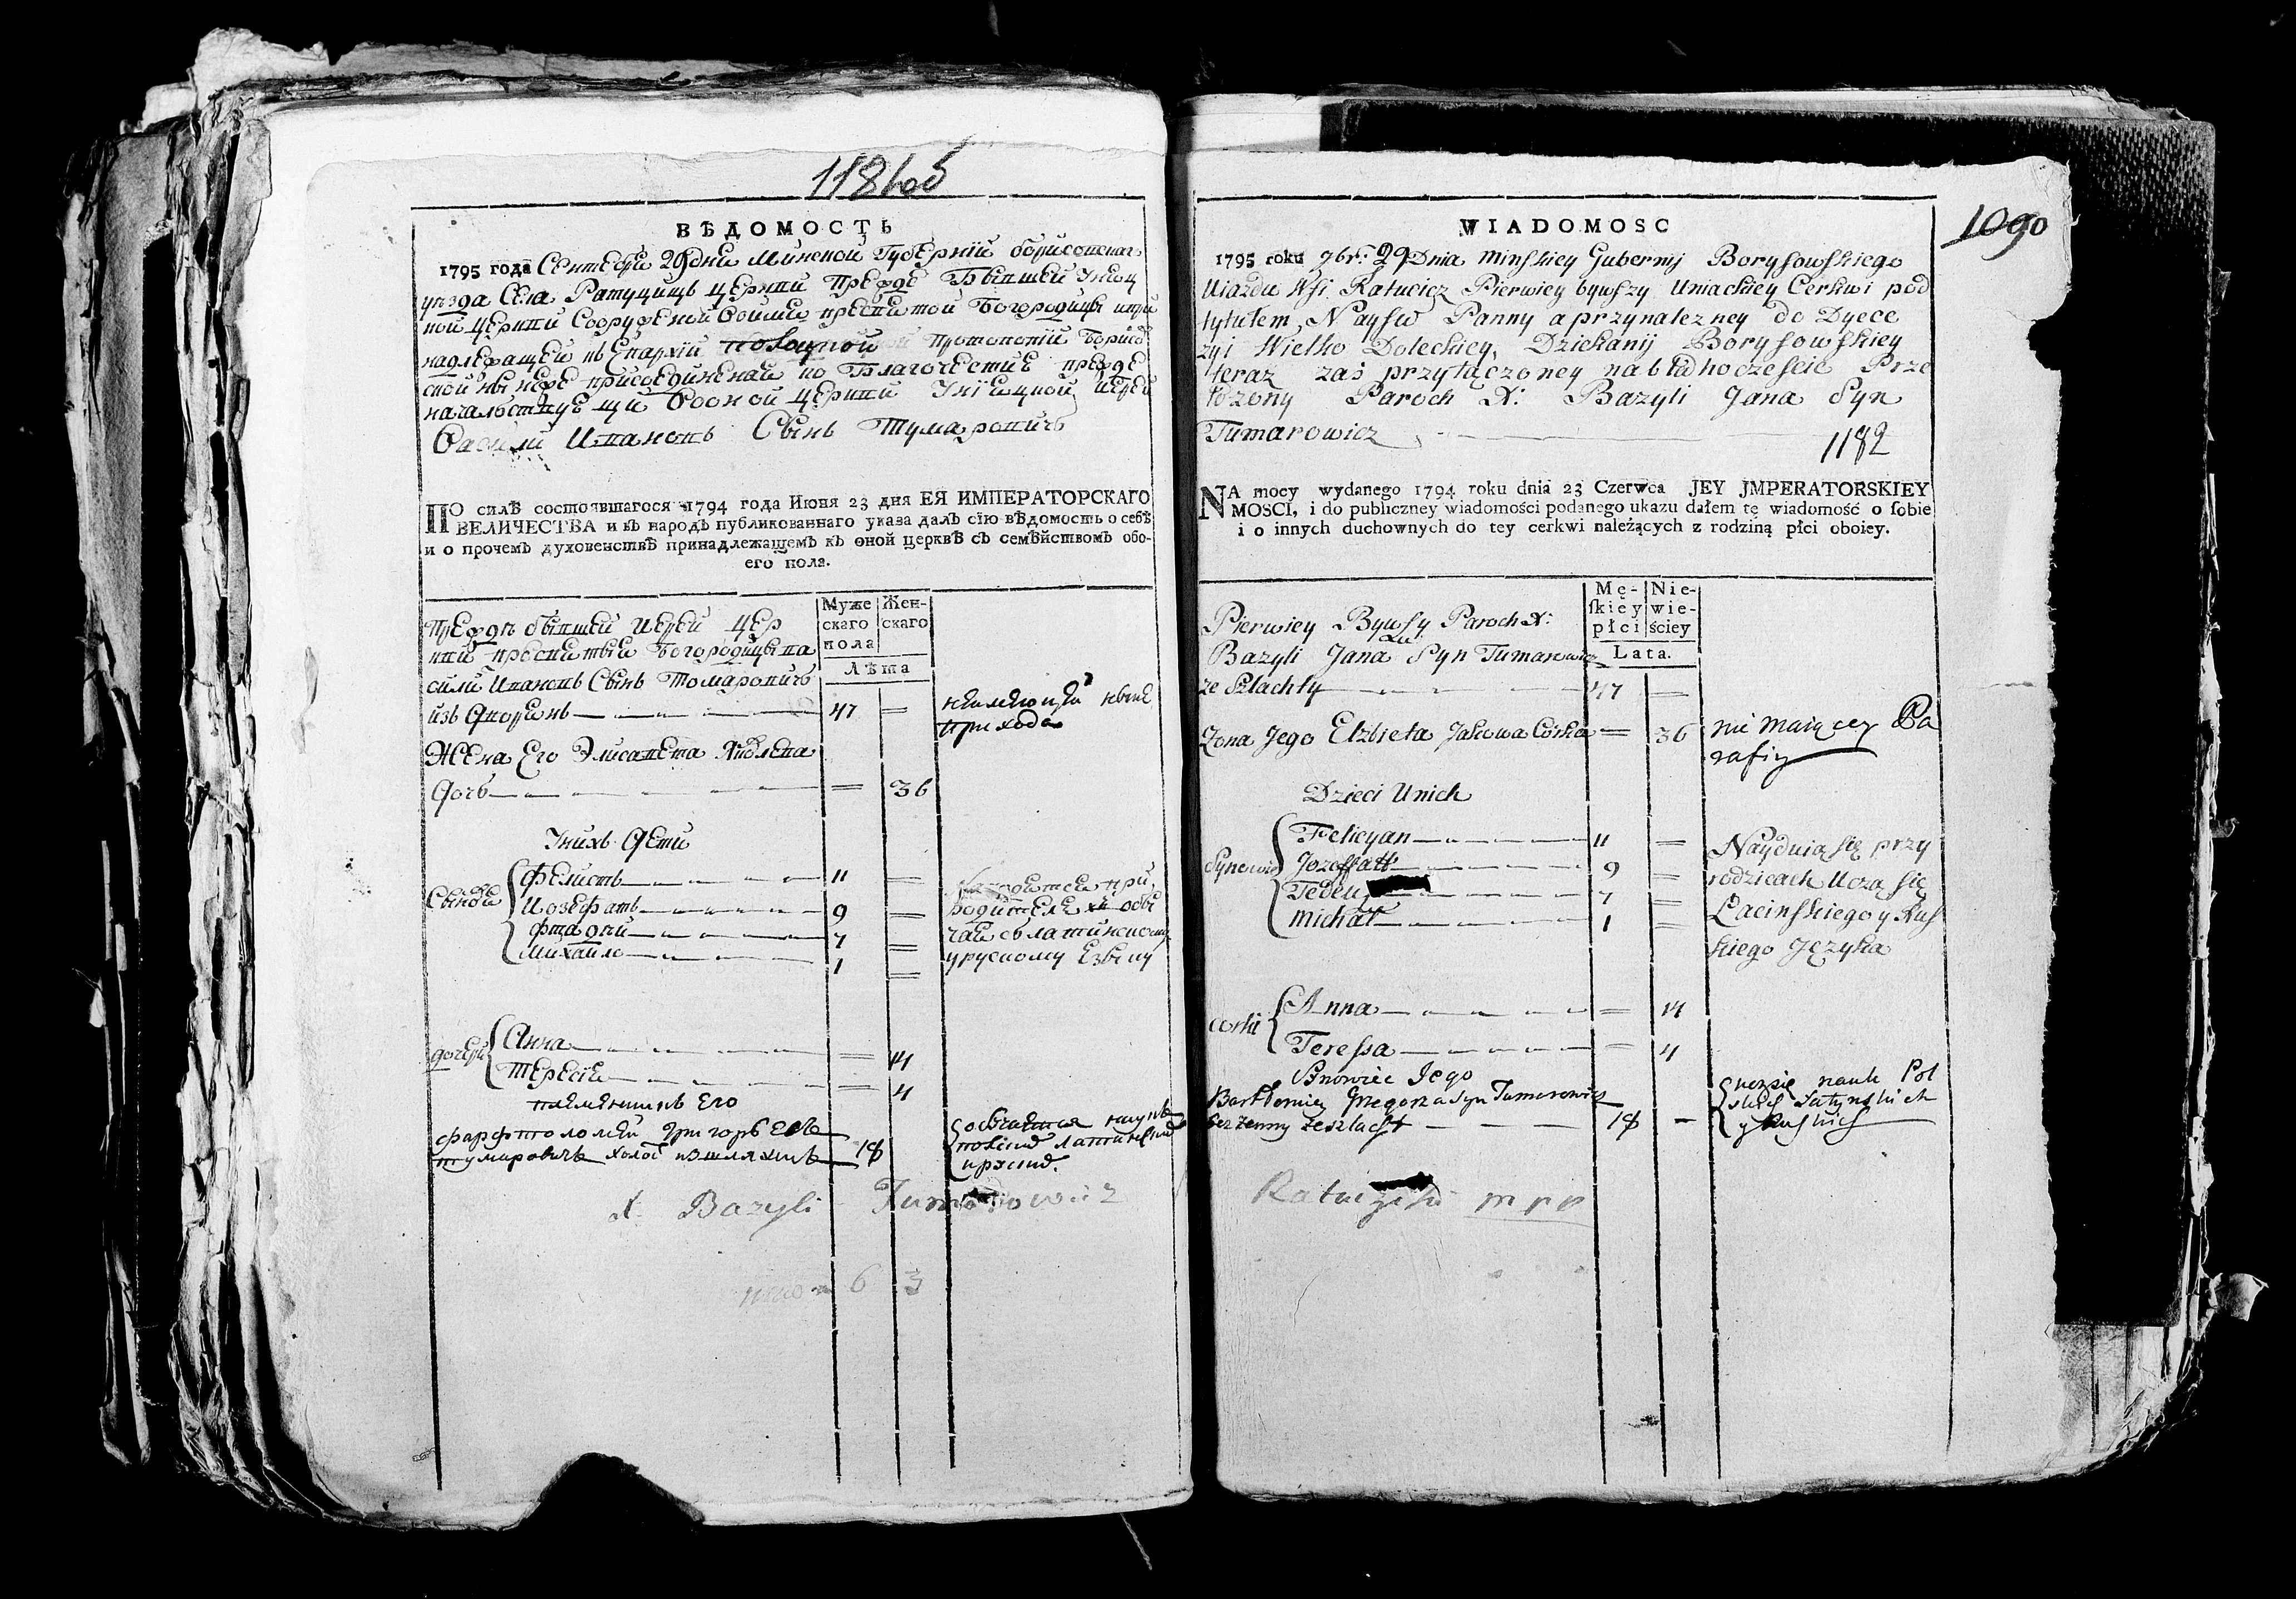 1181об
ВѢДОМОСТЬ
1795 года Сентебря 29 дня Минской Губернїи борисовскаго
уезда Села Ратуцичь церкви Прежде Бывшей Униц
кой церкви Сооруженой воимя пресвятой Богородицы ипри
надлежащей къ Епархїи полоцкой Протопопїи борисо
ской нынеже присоединеной ко Благочестие прежде
начальствующи воѡной церкви Унїацкой Иерей
Васили Ивановъ Сынъ Тумаровичь
ПО силѣ состоявшагося 1794 года Июня 23 дня ЕЯ ИМПЕРАТОРСКАГО
ВЕЛИЧЕСТВА и въ народъ публикованнаго указа далъ сїю вѣдомость о себѣ
и о прочемъ духовенствѣ принадлежащемъ къ оной церквѣ съ семѣйствомъ обо-
его пола.
Муже
скаго
пола
Жен-
скаго
Лѣта
Прежде бывшей Иерей цер
кви пресвятыя Богородицы ва
сили Ивановъ Сынъ Томаровичь
изъ дворянъ 47 =
неимеющей ныне
прихода
Жена Его Элисавета Яковлева
дочь = 36
Унихъ дети
Сыновя
Феликсъ 11 =
Иозефатъ 9 =
Фтадей 7 =
Михайло 1 =
находятся при
родителе обу
чаю
латинскому
у рускому Езыку
дочери
Анна = 14
Тересия = 4
племянникъ Его
фарфтоломей Григорь евъ
тумаровичь холос изшляхты 18
обучается наукъ
польски латински
ируски.
X. Bazyli Tumarowicz
6 3
1090
WIADOMOSC
1795 roku 9br: 29 Dnia Minskiey Gubernij Borysowskiego
Uiazdu Wsi Ratucicz Pierwiey bywszy Uniackiey Cerkwi pod
tytułem Nayśw Panny a przynalezney do Dyece
zyi Wielko Poleckiey, Dziekanij Borysowskiey
teraz zaś przyłączoney na błahoczescie Prze
łożony Paroch X: Bazyli Jana Syn
Tumarowicz
1182
NA mocy wydanego 1794 roku dnia 23 Czerwca JEY JMPERATORSKIEY
MOSCI, i do publiczney wiadomości podanego ukazu dałem tę wiadomość o sobie
i o innych duchownych do tey cerkwi należących z rodziną płci oboiey.
Mę-
skiey
płci
Nie-
wie-
ściey
Lata.
Pierwiey Bywsy Paroch X:
Bazyli Jana Syn Tumarowicz
ze Szlachty 47 =
Zona Jego Elzbieta Jakowa Córka = 36
nie maiącey Pa
rafiy
Dzieci Unich
Synowie
Felicyan 11 =
Jozeffatt 9 =
Tedeu 7 =
Michał 1 =
Nayduią się przy
rodzicach Uczą się
Łacinskiego y Rus
kiego Języka
Corki
Anna = 14
Teressa = 4
Synowiec Jego
Bartłomiey Grzegorza Syn Tumarowicz
bezzenny zeszlacht 18 -
uczsie nauk Pol
skich Łatynskich
y Ruskich
Ratuczski mpp